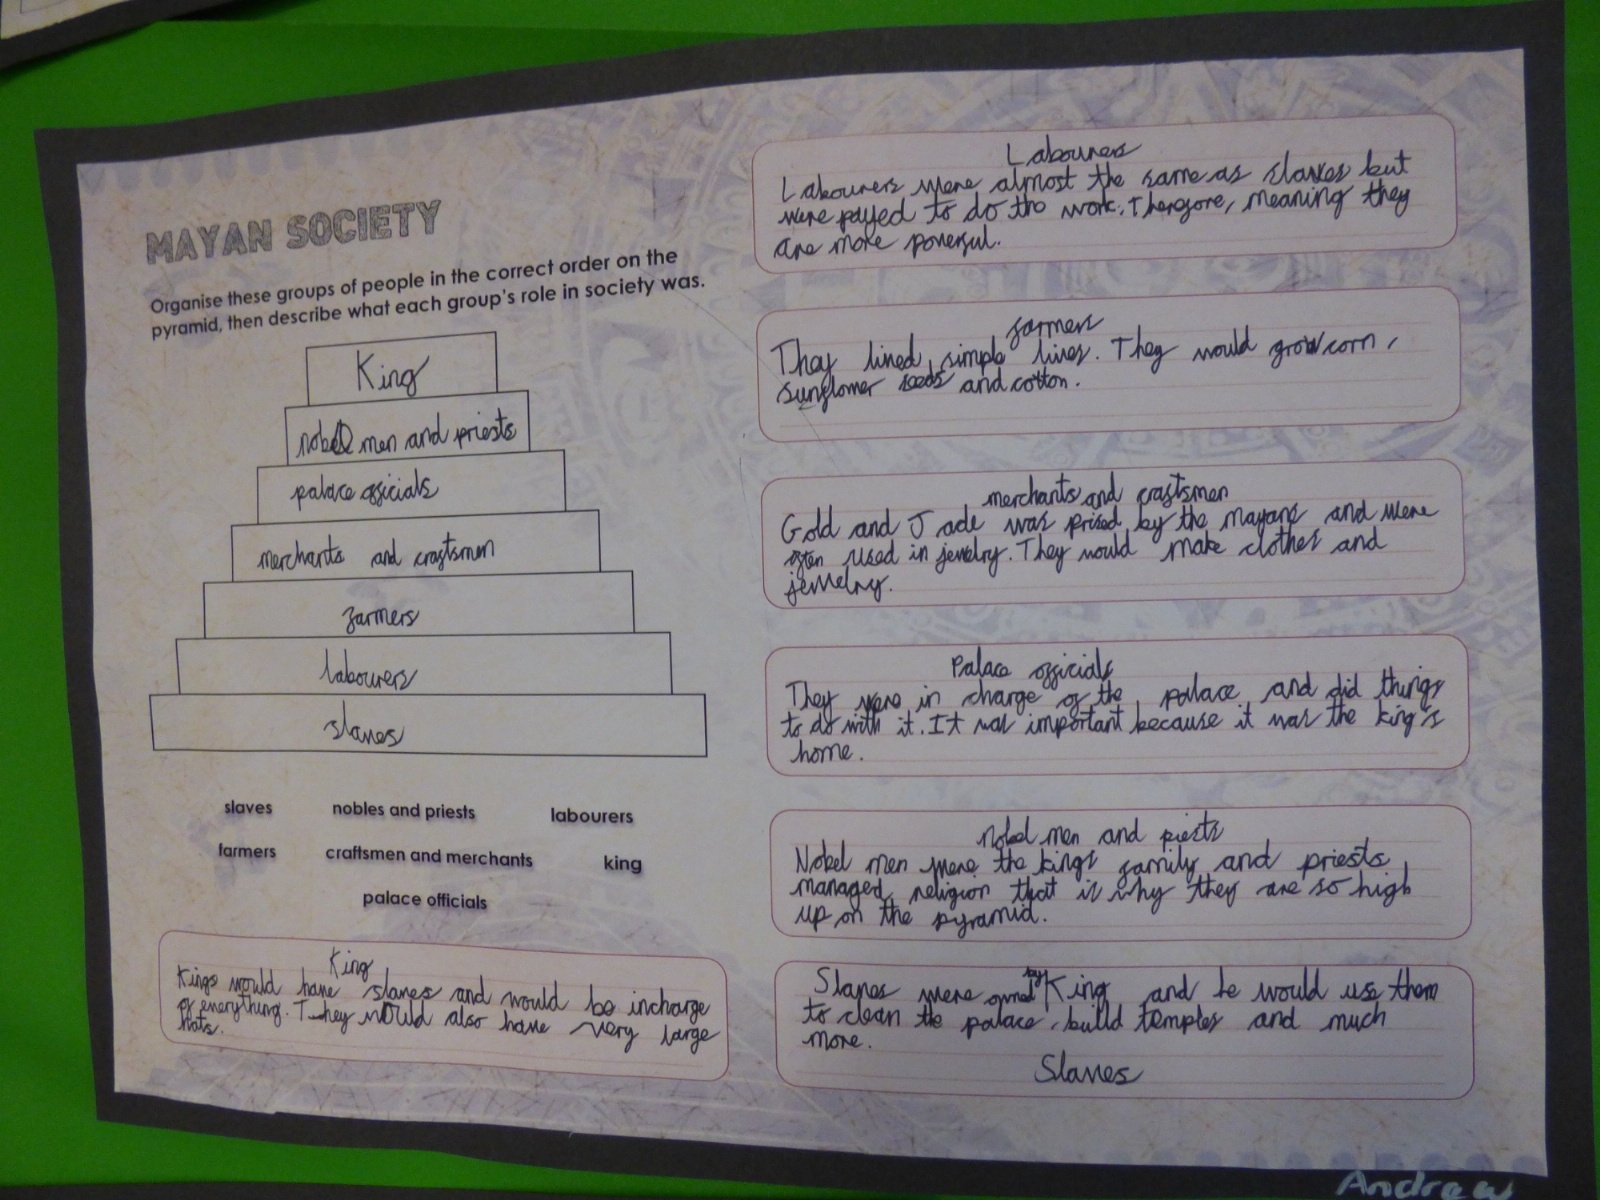 MAYAN SOCIETY
Organise these groups of people in the correct order on the
pyramid, then describe what each group's role in society was.
King
nobel men and priests
palace officials
merchants and craftsmen
farmers
labourers
slaves
slaves nobles and priests labourers
farmers craftsmen and merchants king
palace officials
King
Kings would have slaves and would be incharge
of everything. They would also have very large
hats.
Labourers
Labourers were almost the same as slaves but
were payed to do the work. Therefore, meaning they
are more powerful.
farmers
They lived simple lives. They would grow corn,
sunflower seeds and cotton.
merchants and craftsmen
Gold and Jade was prised by the mayans and were
often used in jewelry. They would make clothes and
jewelry.
Palace officials
They were in charge of the palace and did things
to do with it. It was important because it was the king's
home.
Nobel men and piests
Nobel men were the kings family and priests
managed religion that is why they are so high
up on the pyramid.
Slaves were owned by King and he would use them
to clean the palace, build temples and much
more.
Slaves
Andrew